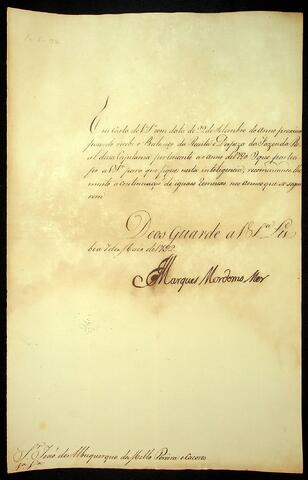 Em Carta de V. S.ª com data de 22 de Setembro do Anno proximo
passado recebi o Balanço da Receita e Despeza da Fazenda Re-
al dessa Capitania pertencente ao anno de 1790
so a V. S.ª para que fique nesta intelligencia; recomendando-lhe
muito a continuaçaõ de iguaes remessas nos annos que se segui-
rem
Deos Guarde a V. S.ª Lis-
boa 7 de Maio de
Marques Mordomo Mor
S.r Joaõ de Albuquerque de Mello Pereira e Caceres